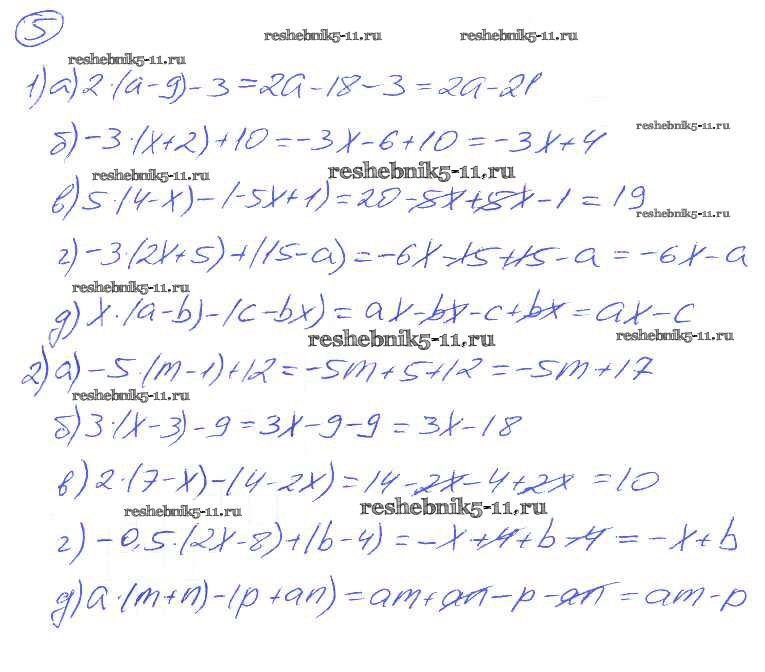 5
reshebnik5-11.ru reshebnik5-11.ru
reshebnik5-11.ru
1) а) 2·(a-9)-3=2a-18-3=2a-21
reshebnik5-11.ru
б) -3·(x+2)+10=-3x-6+10=-3x+4
reshebnik5-11.ru reshebnik5-11.ru
в) 5·(4-x)-(-5x+1)=20-5x+5x-1=19
reshebnik5-11.ru
г) -3·(2x+5)+(15-a)=-6x-15+15-a=-6x-a
reshebnik5-11.ru
д) x·(a-b)-(c-bx)=ax-bx-c+bx=ax-c
reshebnik5-11.ru reshebnik5-11.ru
2) а) -5·(m-1)+12=-5m+5+12=-5m+17
reshebnik5-11.ru
б) 3·(x-3)-9=3x-9-9=3x-18
в) 2·(7-x)-(4-2x)=14-2x-4+2x=10
reshebnik5-11.ru reshebnik5-11.ru
г) -0,5·(2x-8)+(b-4)=-x+4+b-4=-x+b
д) a·(m+n)-(p+an)=am+an-p-an=am-p